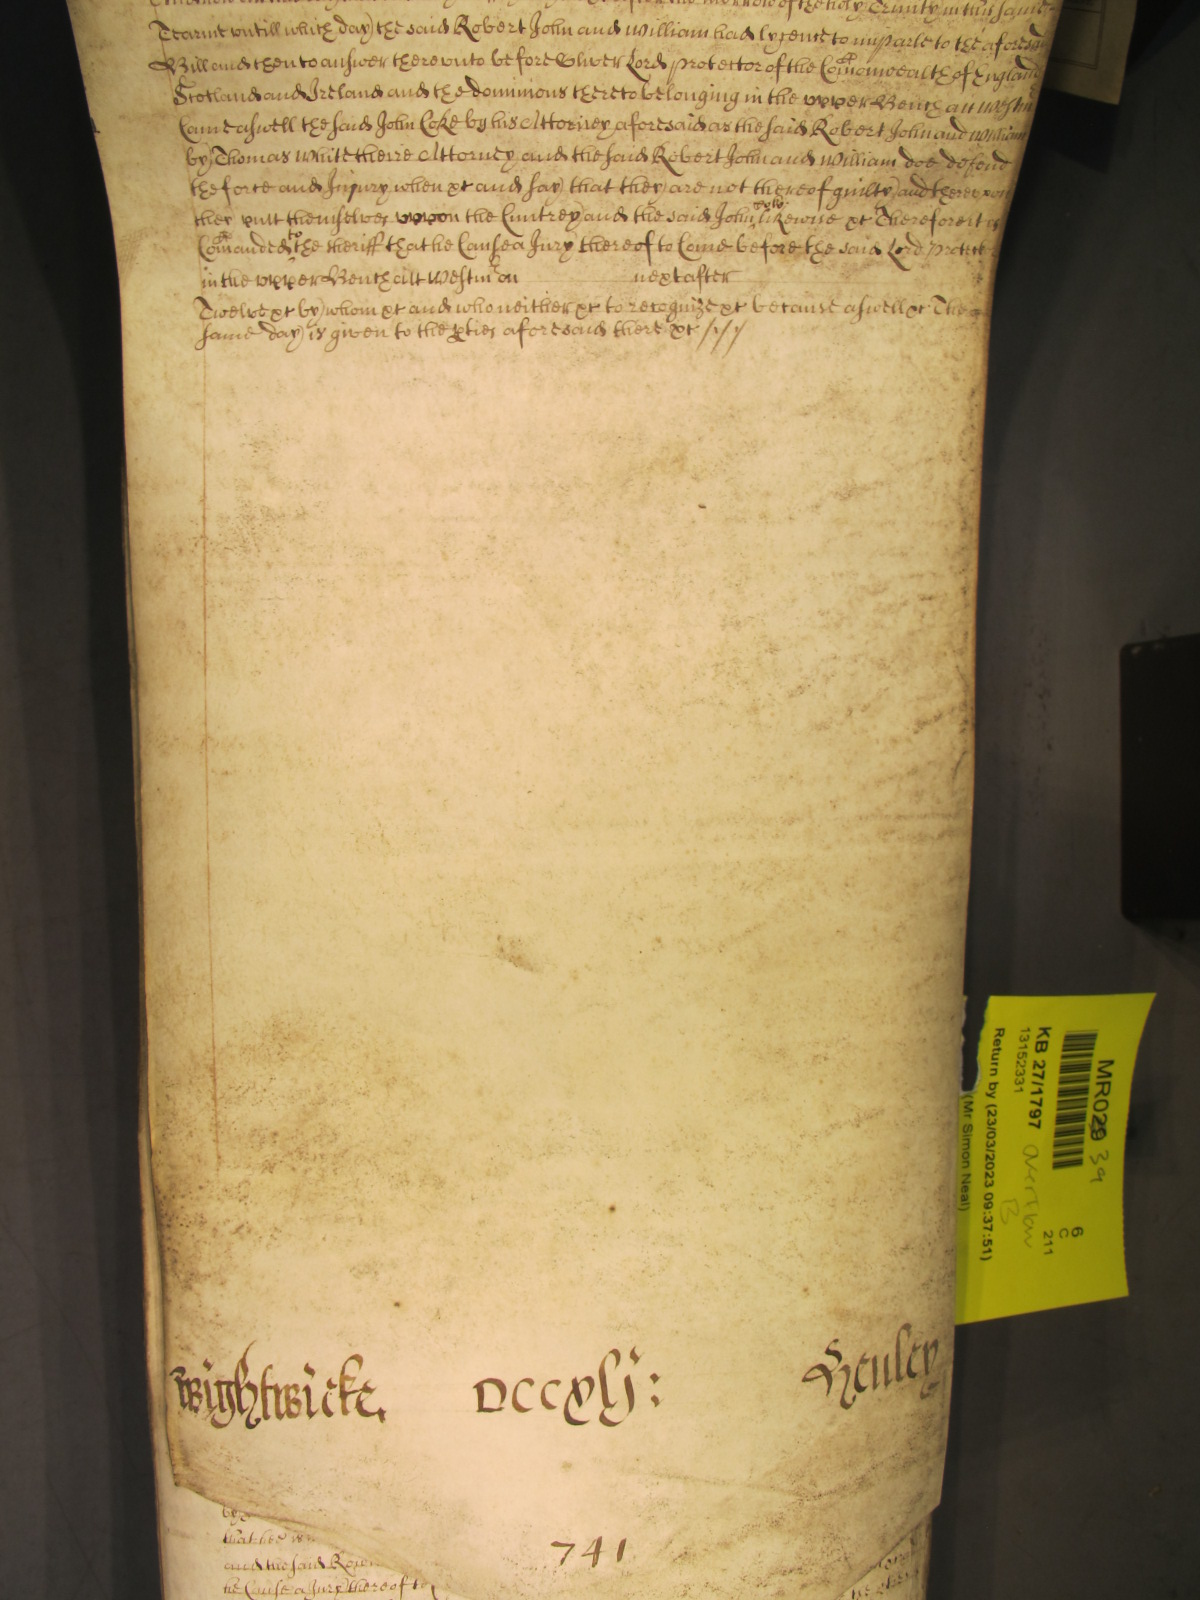 after the morrow of the holy Trinity in this same
Tearme untill which day the said Robert John and William had lycence to imparle to the aforesaid
Bill and then to answer thereunto before Oliver Lord Protector of the Com̄onwealth of England
Scotland and Ireland and the dominions thereto belonging in the upper Bench att Westm̄
Came aswell the said John Coke by his Attorney aforesaid as the said Robert John and William
by Thomas White theire Attorney and the said Robert John and William doe defend
the force and Injury when xt and say that they are not thereof guilty and thereupon
they putt themselves uppon the Cuntrey and the said John Coke likewise xt Therefore it is
Com̄anded to the sheriff that he Cause a Jury thereof to Come before the said Lord Protect
in the upper Bench att Westm̄ on next after
Twelve xt by whom xt and who neither xt to recognize xt because aswell xt The
same day is given to the pties aforesaid there xt ///
Wightwicke.
DCCxlj:
Henley
that hee is
and the said Robert
he Cause a Jury thereof to
741
MR029 39
KB 27/1797
overflow
B
13152331
Return by (23/03/2023 09:37:51)
(Mr Simon Neal)
6
C
211